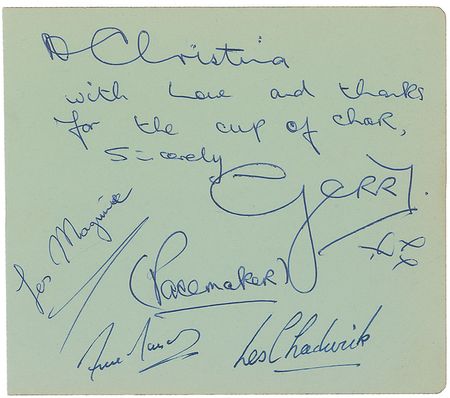 To Christina
with Love and thanks
for the cup of char,
Sincerely
GERRY.
xx
Les Maguire
(Pacemaker)
Les Chadwick